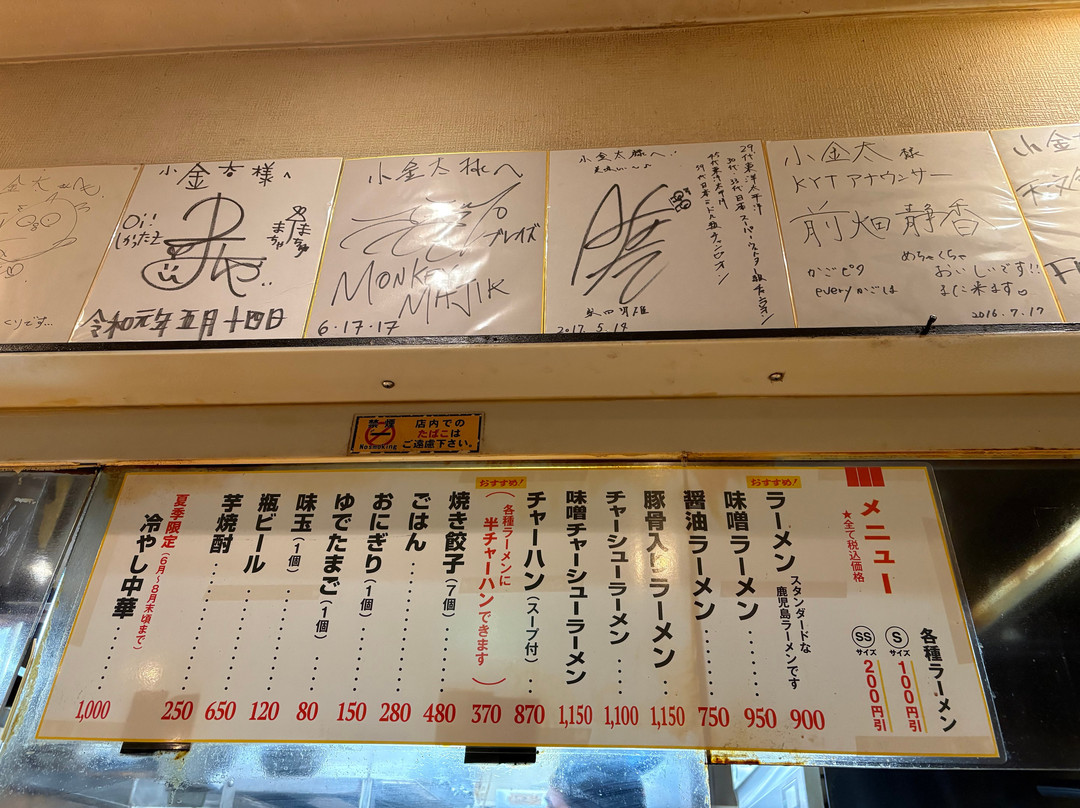 小金太様へ
Oi!
令和元年五月十四日
小金太様へ
ブレイズ
MONKEY MAJIK
6.17.17
小金太様へ
2017.5.14
小金太様
KYTアナウンサー
前畑静香
めちゃくちゃ
おいしいです!!
また来ます
かごピタ
everyかごは
2016.7.17
禁煙
No smoking
店内での
たばこは
ご遠慮下さい。
メニュー
★全て税込価格
各種ラーメン
Sサイズ 100円引
SSサイズ 200円引
おすすめ!
ラーメン スタンダードな鹿児島ラーメンです 900
味噌ラーメン 950
醤油ラーメン 750
豚骨入りラーメン 1,150
チャーシューラーメン 1,100
味噌チャーシューラーメン 1,150
チャーハン(スープ付) 870
おすすめ!
(各種ラーメンに半チャーハンできます) 370
焼き餃子(7個) 480
ごはん 280
おにぎり(1個) 150
ゆでたまご(1個) 80
味玉(1個) 120
瓶ビール 650
芋焼酎 250
夏季限定(6月~8月末頃まで)
冷やし中華 1,000